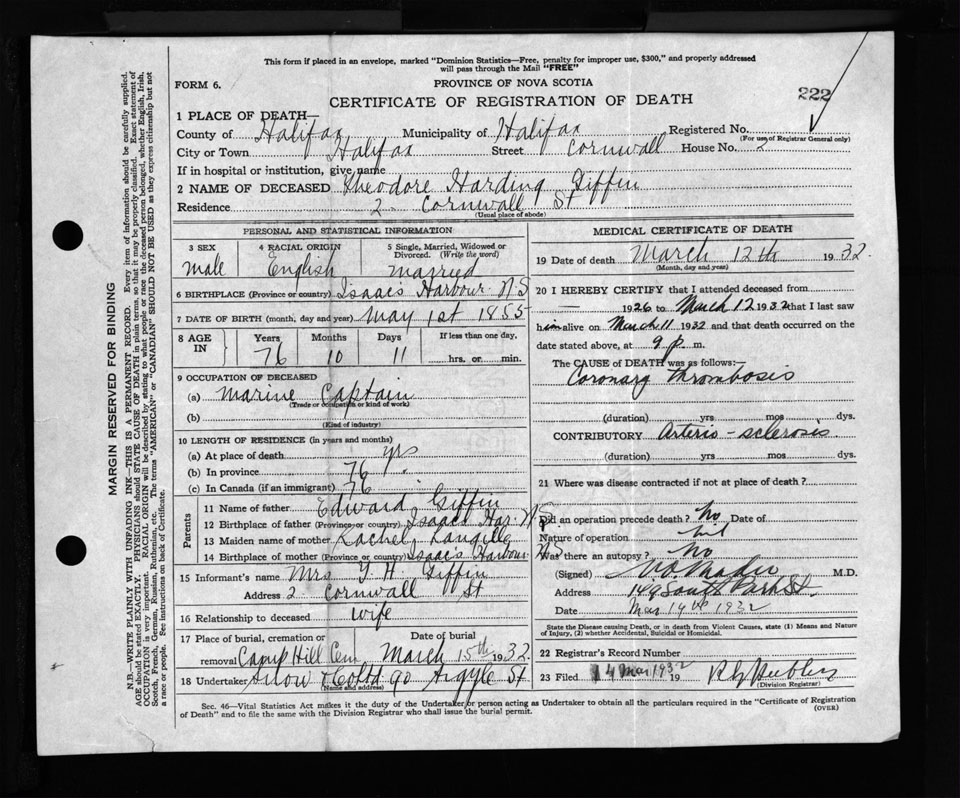 This form if placed in an envelope, marked "Dominion Statistics—Free, penalty for improper use, $300," and properly addressed
will pass through the Mail "FREE"
FORM 6.
PROVINCE OF NOVA SCOTIA
222
CERTIFICATE OF REGISTRATION OF DEATH
1 PLACE OF DEATH—
County of Halifax Municipality of Halifax Registered No.
(For use of Registrar General only)
City or Town Halifax Street Cornwall House No. 2
If in hospital or institution, give name
2 NAME OF DECEASED Theodore Harding Giffin
Residence 2 Cornwall St
(Usual place of abode)
PERSONAL AND STATISTICAL INFORMATION
3 SEX 4 RACIAL ORIGIN 5 Single, Married, Widowed or
Divorced. (Write the word)
male English married
6 BIRTHPLACE (Province or country) Isaac's Harbour N S
7 DATE OF BIRTH (month, day and year) May 1st 1855
8 AGE IN Years Months Days If less than one day,
76 10 11 hrs. or min.
9 OCCUPATION OF DECEASED
(a) Marine Captain
(Trade or occupation or kind of work)
(b)
(Kind of industry)
10 LENGTH OF RESIDENCE (in years and months)
(a) At place of death yrs
(b) In province 76 "
(c) In Canada (if an immigrant) 76
Parents
11 Name of father Edward Giffin
12 Birthplace of father (Province or country) Isaacs Har. N S
13 Maiden name of mother Rachel Langille
14 Birthplace of mother (Province or country) Isaac's Harbour N S
15 Informant's name Mrs T H Giffin
Address 2 Cornwall St
16 Relationship to deceased wife
17 Place of burial, cremation or Date of burial
removal Camp Hill Cem March 15th 1932
18 Undertaker Snow & Co Ltd 90 Argyle St
(Name and address)
MEDICAL CERTIFICATE OF DEATH
19 Date of death March 12th 1932.
(Month, day and year)
20 I HEREBY CERTIFY that I attended deceased from
1926 to March 12 1932 that I last saw
him alive on March 11 1932 and that death occurred on the
date stated above, at 9 p. m.
The CAUSE of DEATH was as follows:—
Coronary Thrombosis
(duration) yrs mos dys.
CONTRIBUTORY Arterio-sclerosis
(duration) yrs mos dys.
21 Where was disease contracted if not at place of death?
Did an operation precede death? No Date of
Nature of operation
Was there an autopsy? No
(Signed) Mader M.D.
Address 149 South Park St.
Date Mar 14th 1932
State the Disease causing Death, or in death from Violent Causes, state (1) Means and Nature
of Injury, (2) whether Accidental, Suicidal or Homicidal.
22 Registrar's Record Number
23 Filed 14 Mar 1932 19
(Division Registrar)
Sec. 46—Vital Statistics Act makes it the duty of the Undertaker or person acting as Undertaker to obtain all the particulars required in the "Certificate of Registration
of Death" and to file the same with the Division Registrar who shall issue the burial permit.
(OVER)
MARGIN RESERVED FOR BINDING
N.B.—WRITE PLAINLY WITH UNFADING INK—THIS IS A PERMANENT RECORD. Every item of information should be carefully supplied.
AGE should be stated EXACTLY. PHYSICIANS should STATE CAUSE OF DEATH in plain terms, so that it may be properly classified. Exact statement of
OCCUPATION is very important. RACIAL ORIGIN will be described by stating to what people or race the deceased person belonged, whether English, Irish,
Scotch, French, German, Russian, Ruthenian, etc. The terms "AMERICAN" or "CANADIAN" SHOULD NOT BE USED as they express citizenship but not
a race or people. See instructions on back of Certificate.